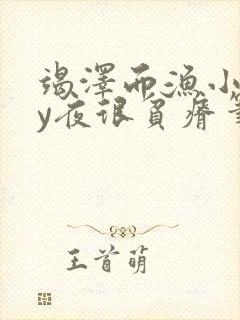 竭澤而漁小
y夜很負瘠筆
王首萌